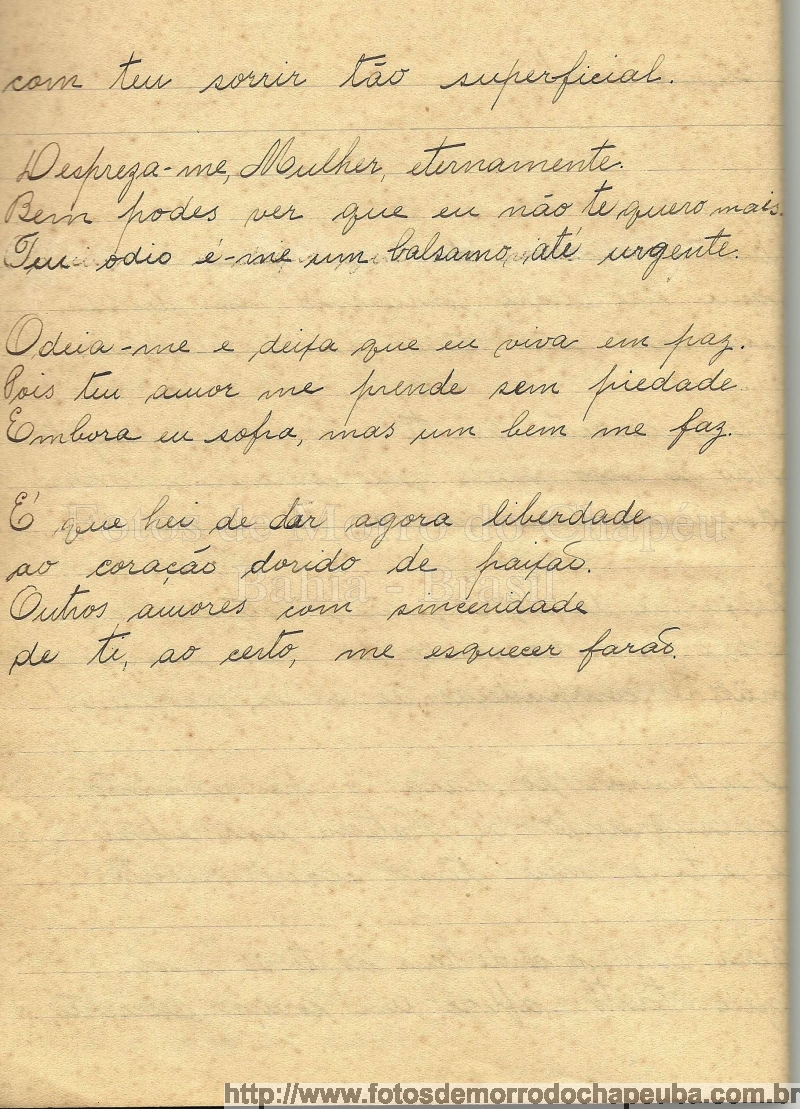 com teu sorrir tão superficial.
Despreza-me, Mulher, eternamente.
Bem podes ver que eu não te quero mais.
Teu odio é-me um balsamo, até urgente.
Odeia-me e deixa que eu viva em paz.
Pois teu amor me prende sem piedade
Embora eu sofra, mas um bem me faz.
E' que hei de dar agora liberdade
Fotos de Morro do Chapéu
ao coração dorido de paixão.
Bahia - Brasil
Outros amores com sinceridade
de ti, ao certo, me esquecer farão.
http://www.fotosdemorrodochapeuba.com.br